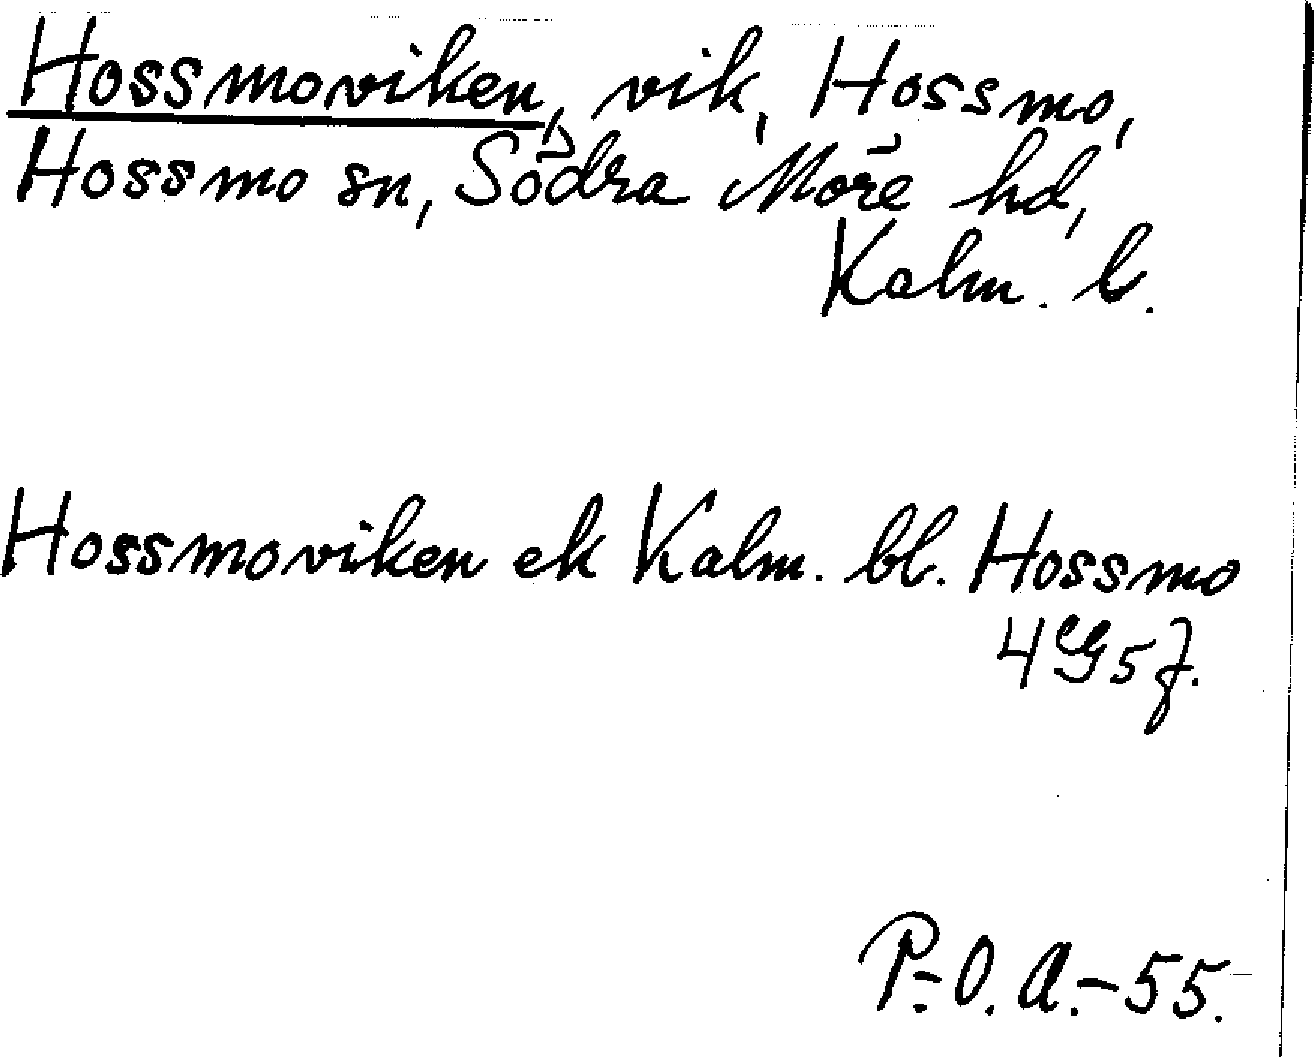 Hossmoviken, vik, Hossmo,
Hossmo sn, Södra Möre hd,
Kalm. l.
Hossmoviken ek Kalm. bl. Hossmo
4G5f.
P.-O. A.-55.